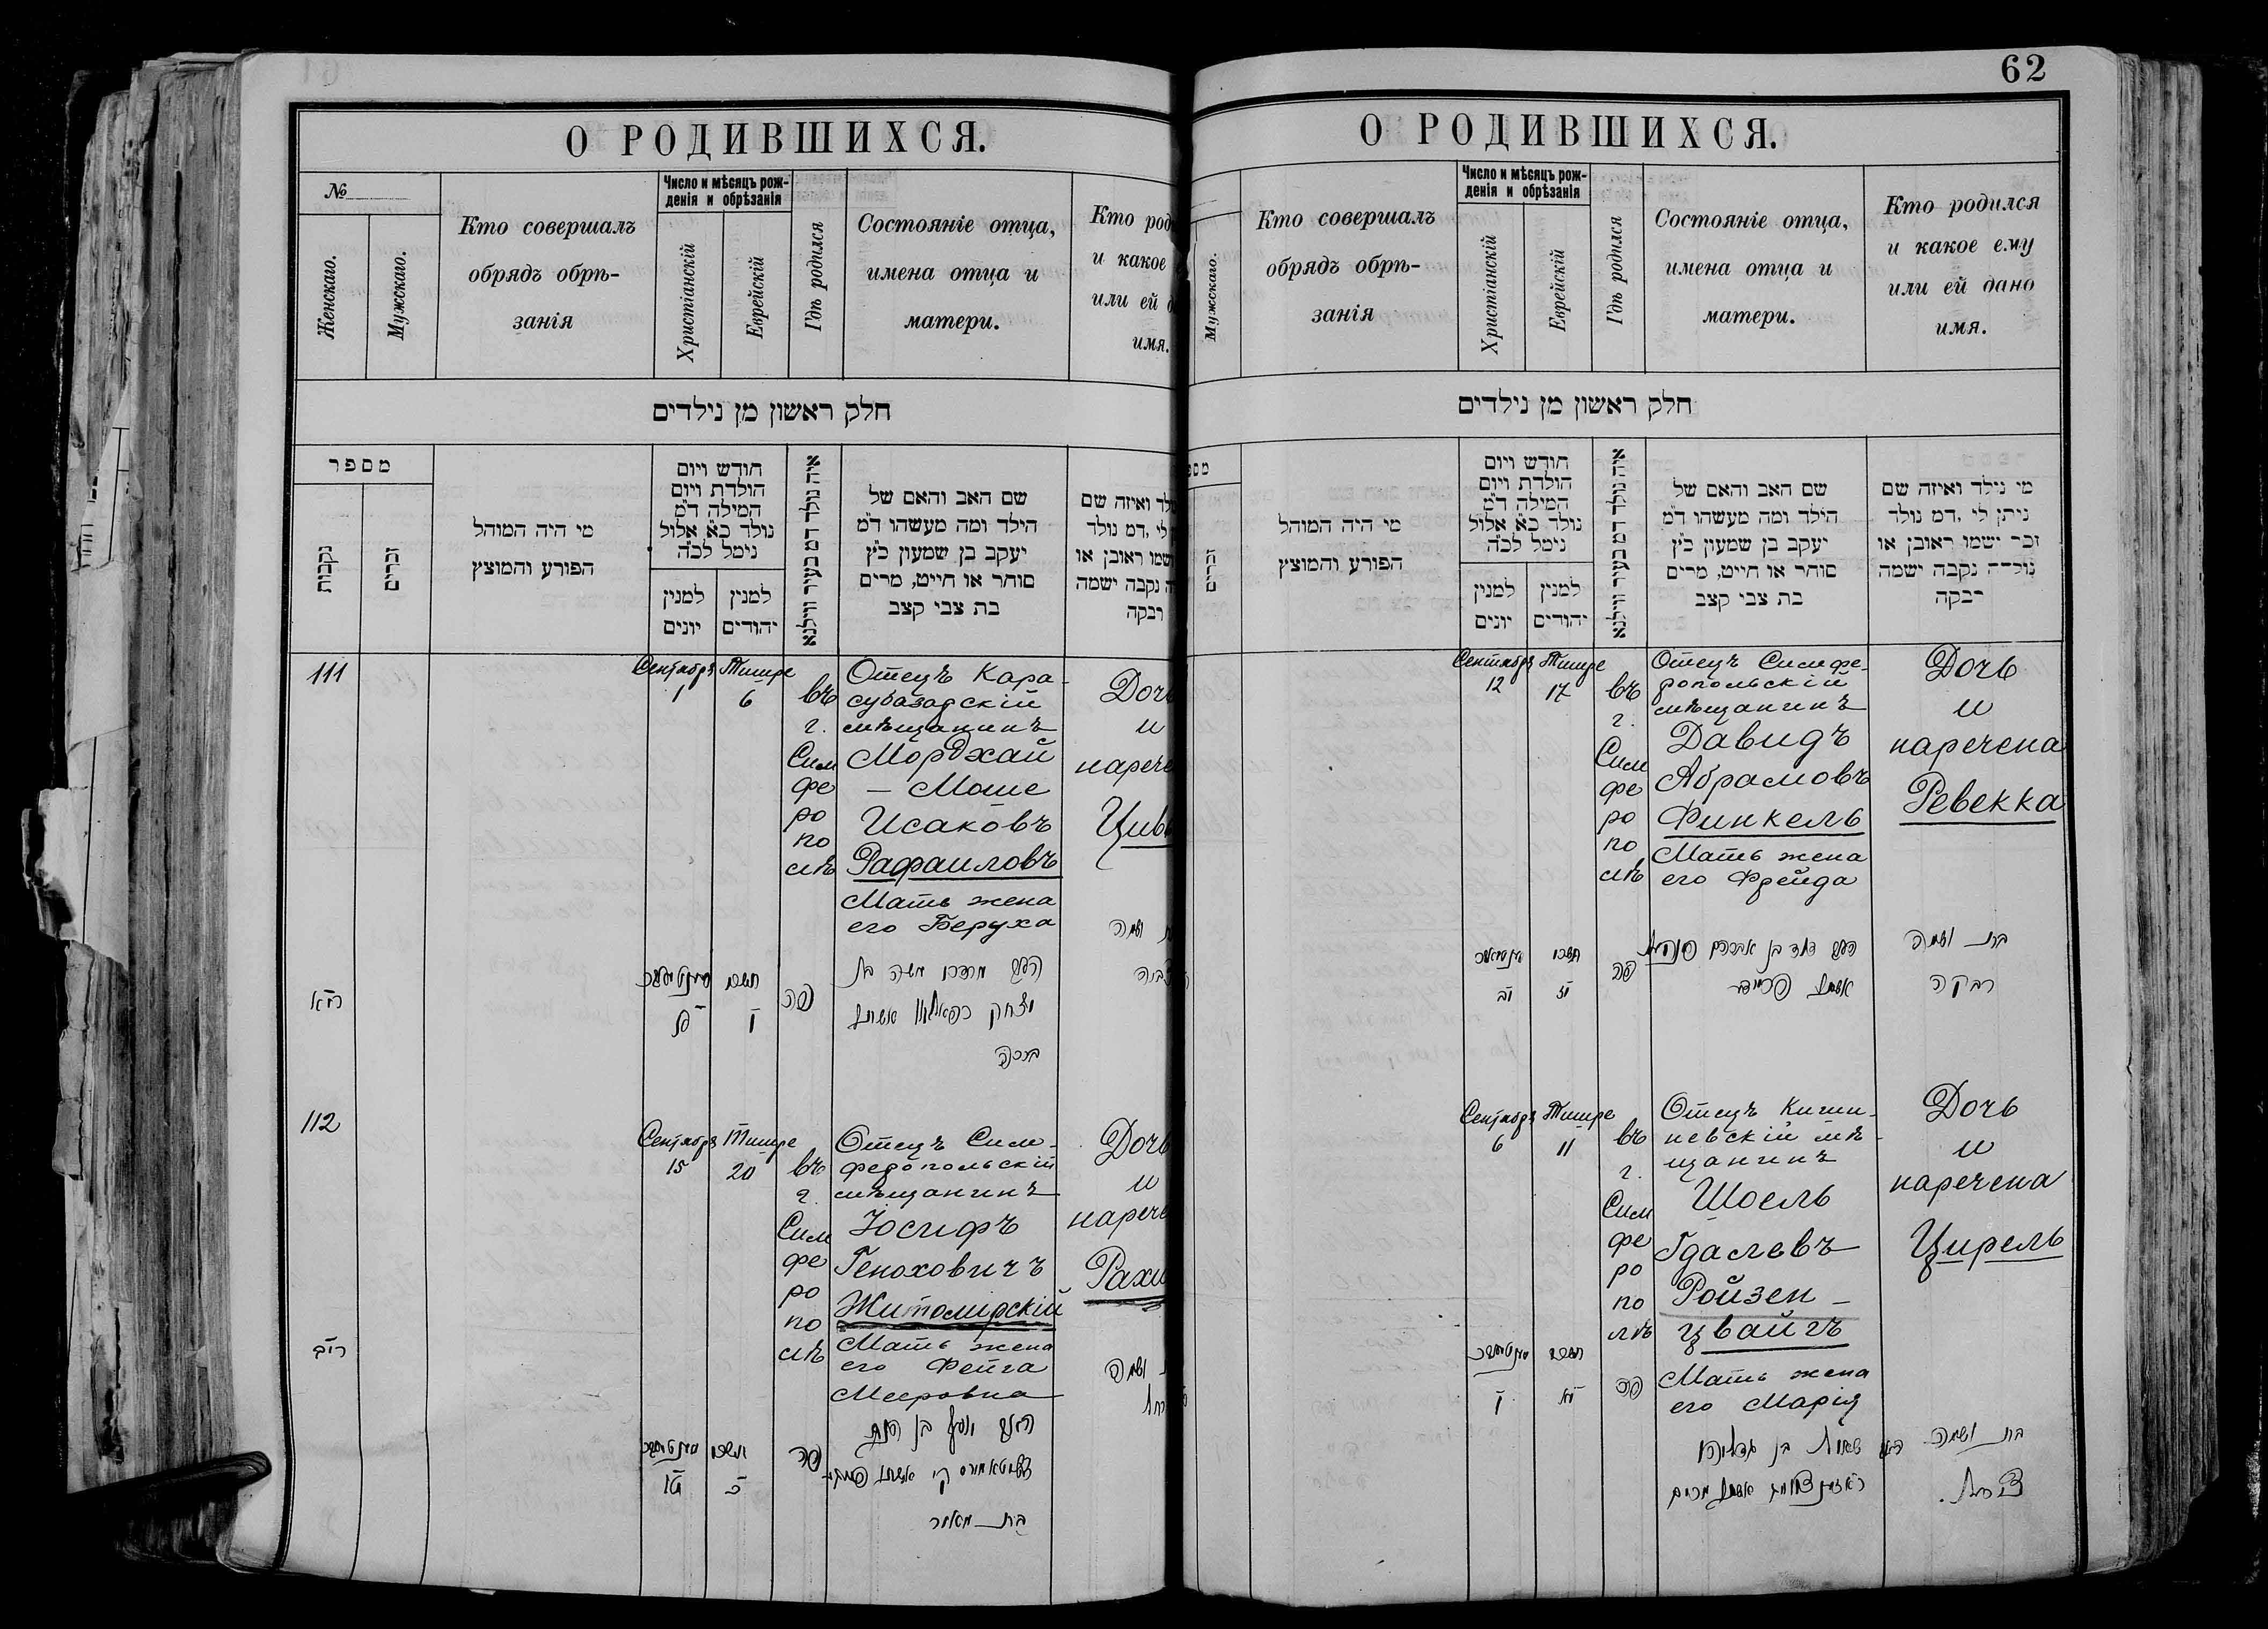 О РОДИВШИХСЯ.
№
Женскаго.
Мужскаго.
Кто совершалъ
обрядъ обрѣ-
занія
Число и мѣсяцъ рож-
денія и обрѣзанія
Христіанскій
Еврейскій
Гдѣ родился
Состояніе отца,
имена отца и
матери.
Кто род
и какое
или ей д
имя.
חלק ראשון מן נילדים
מספר
נקבות
זכרים
מי היה המוהל
הפורע והמוצץ
חודש ויום
הולדת ויום
המילה ד״מ
נולד כ״א אלול
נימל לכ״ה
למנין
יונים
למנין
יהודים
איה נולד דמ בעיר ווילנא
שם האב והאם של
הילד ומה מעשהו ד״מ
יעקב בן שמעון כ״ץ
סוחר או חייט, מרים
בת צבי קצב
לד ואיזה שם
לי, דמ נולד
שמו ראובן או
ה נקבה ישמה
רבקה
111
Сентябрь
1
Тишре
6
въ
г.
Сим
фе
ро
по
лѣ
Отецъ Кара-
субазарскій
мѣщанинъ
Мордхай
— Моше
Исаковъ
Рафаиловъ
Мать жена
его Беруха
Дочь
и
нарече
Цив
קי״א
ו
פה
מרדכי משה בן
יצחק
ברכה
ושמה
112
Сентябрь
15
Тишре
20
въ
г.
Сим
фе
ро
по
лѣ
Отецъ Сим-
феропольскій
мѣщанинъ
Іосифъ
Геноховичъ
Житомирскій
Мать жена
его Фейга
Мееровна
Дочь
и
нарече
Рахи
קי״ב
ט״ו
כ
פה
יוסף בן
בת מאיר
ושמה
62
О РОДИВШИХСЯ.
Мужскаго.
Кто совершалъ
обрядъ обрѣ-
занія
Число и мѣсяцъ рож-
денія и обрѣзанія
Христіанскій
Еврейскій
Гдѣ родился
Состояніе отца,
имена отца и
матери.
Кто родился
и какое ему
или ей дано
имя.
חלק ראשון מן נילדים
מספ
זכרים
מי היה המוהל
הפורע והמוצץ
חודש ויום
הולדת ויום
המילה ד״מ
נולד כ״א אלול
נימל לכ״ה
למנין
יונים
למנין
יהודים
איה נולד דמ בעיר ווילנא
שם האב והאם של
הילד ומה מעשהו ד״מ
יעקב בן שמעון כ״ץ
סוחר או חייט, מרים
בת צבי קצב
מי נילד ואיזה שם
ניתן לי, דמ נולד
זכר ישמו ראובן או
נולדה נקבה ישמה
רבקה
Сентябрь
12
Тишре
17
въ
г.
Сим
фе
ро
по
лѣ
Отецъ Симфе-
ропольскій
мѣщанинъ
Давидъ
Абрамовъ
Финкель
Мать жена
его Фрейда
Дочь
и
наречена
Ревекка
י״ב
י״ז
פה
דוד בן אברהם פינקעל
אשתו פריידע
בת ושמה
רבקה
Сентябрь
6
Тишре
11
въ
г.
Сим
фе
ро
по
лѣ
Отецъ Киши-
невскій мѣ-
щанинъ
Шоель
Гдалевъ
Ройзен-
цвайгъ
Мать жена
его Марія
Дочь
и
наречена
Цирель
ו
י״א
פה
שאול בן גדליהו
אשתו מרים
בת ושמה
צירל.